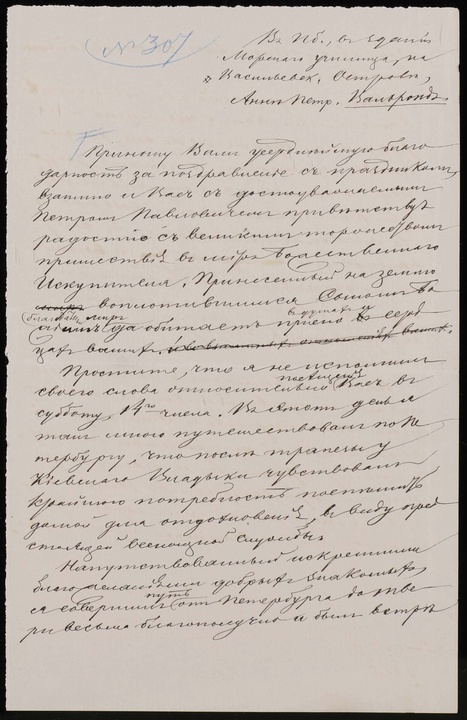 № 307
Въ Пб., въ зданіи
Морскаго училища, на
Васильевск. Островѣ,
Аннѣ Петр. Вальрондъ.
Приношу Вамъ усерднѣйшую благо-
дарность за поздравленіе съ праздниками,
взаимно и Васъ съ достоуважаемымъ
Петромъ Павловичемъ привѣтствую
радостію съ великимъ торжествомъ
пришествія въ міръ Божественнаго
Искупителя. Принесенный на землю
миръ воплотившимся Сыномъ Бо-
благодатный миръ
жіимъ да обитаетъ присно въ серд-
въ душахъ и
цахъ вашихъ
Простите, что я не исполнилъ
своего слова относительно Васъ въ
посѣщенія
субботу, 14го числа. Въ этотъ день я
такъ много путешествовалъ по Пе-
тербургу, что послѣ трапезы у
Кіевскаго Владыки чувствовалъ
крайнюю потребность поспѣшить
домой для отдохновенія, въ виду пред-
стоящей всенощной службы.
Напутствованный искренними
благожеланіями добрыхъ знакомыхъ,
я совершилъ отъ Петербурга до Тве-
путь
ри весьма благополучно и былъ встрѣ-